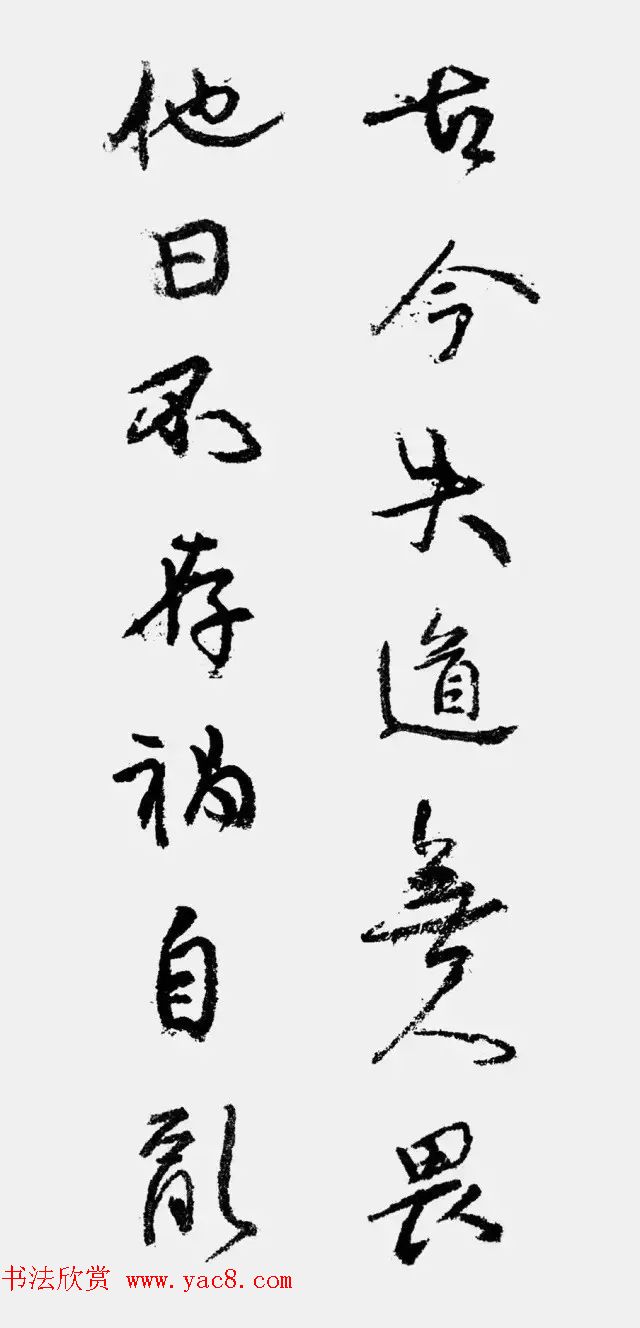 古今失道無人畏
他日不存祸自亂
书法欣赏 www.yac8.com